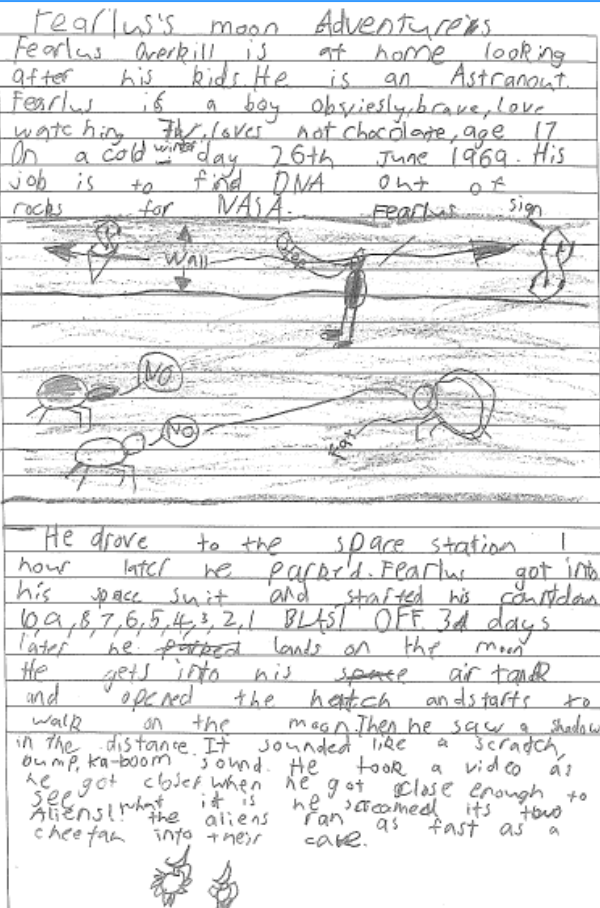 Fearlus's moon Adventurens
Fearlus Overkill is at home looking
after his kids. He is an Astranout.
Fearlus is a boy obsviesly, brave, love
watching, loves hot chocolate, age 17
On a cold winter day 26th June 1969. His
job is to find DNA out of
rocks for NASA. Fearlus sign
Wall
NO
NO
He drove to the space station 1
hour later he parked. Fearlus got into
his space suit and started his countdown
10,9,8,7,6,5,4,3,2,1 BLAST OFF. 3 days
later he parked lands on the moon
He gets into his space air tank
and opened the hetch and starts to
walk on the moon. Then he saw a shadow
in the distance. It sounded like a scratch,
bump, ka-boom sound. He took a video as
he got closer when he got close enough to
see what it is he screamed its two
Aliens!! the aliens ran as fast as a
cheetah into their cave.